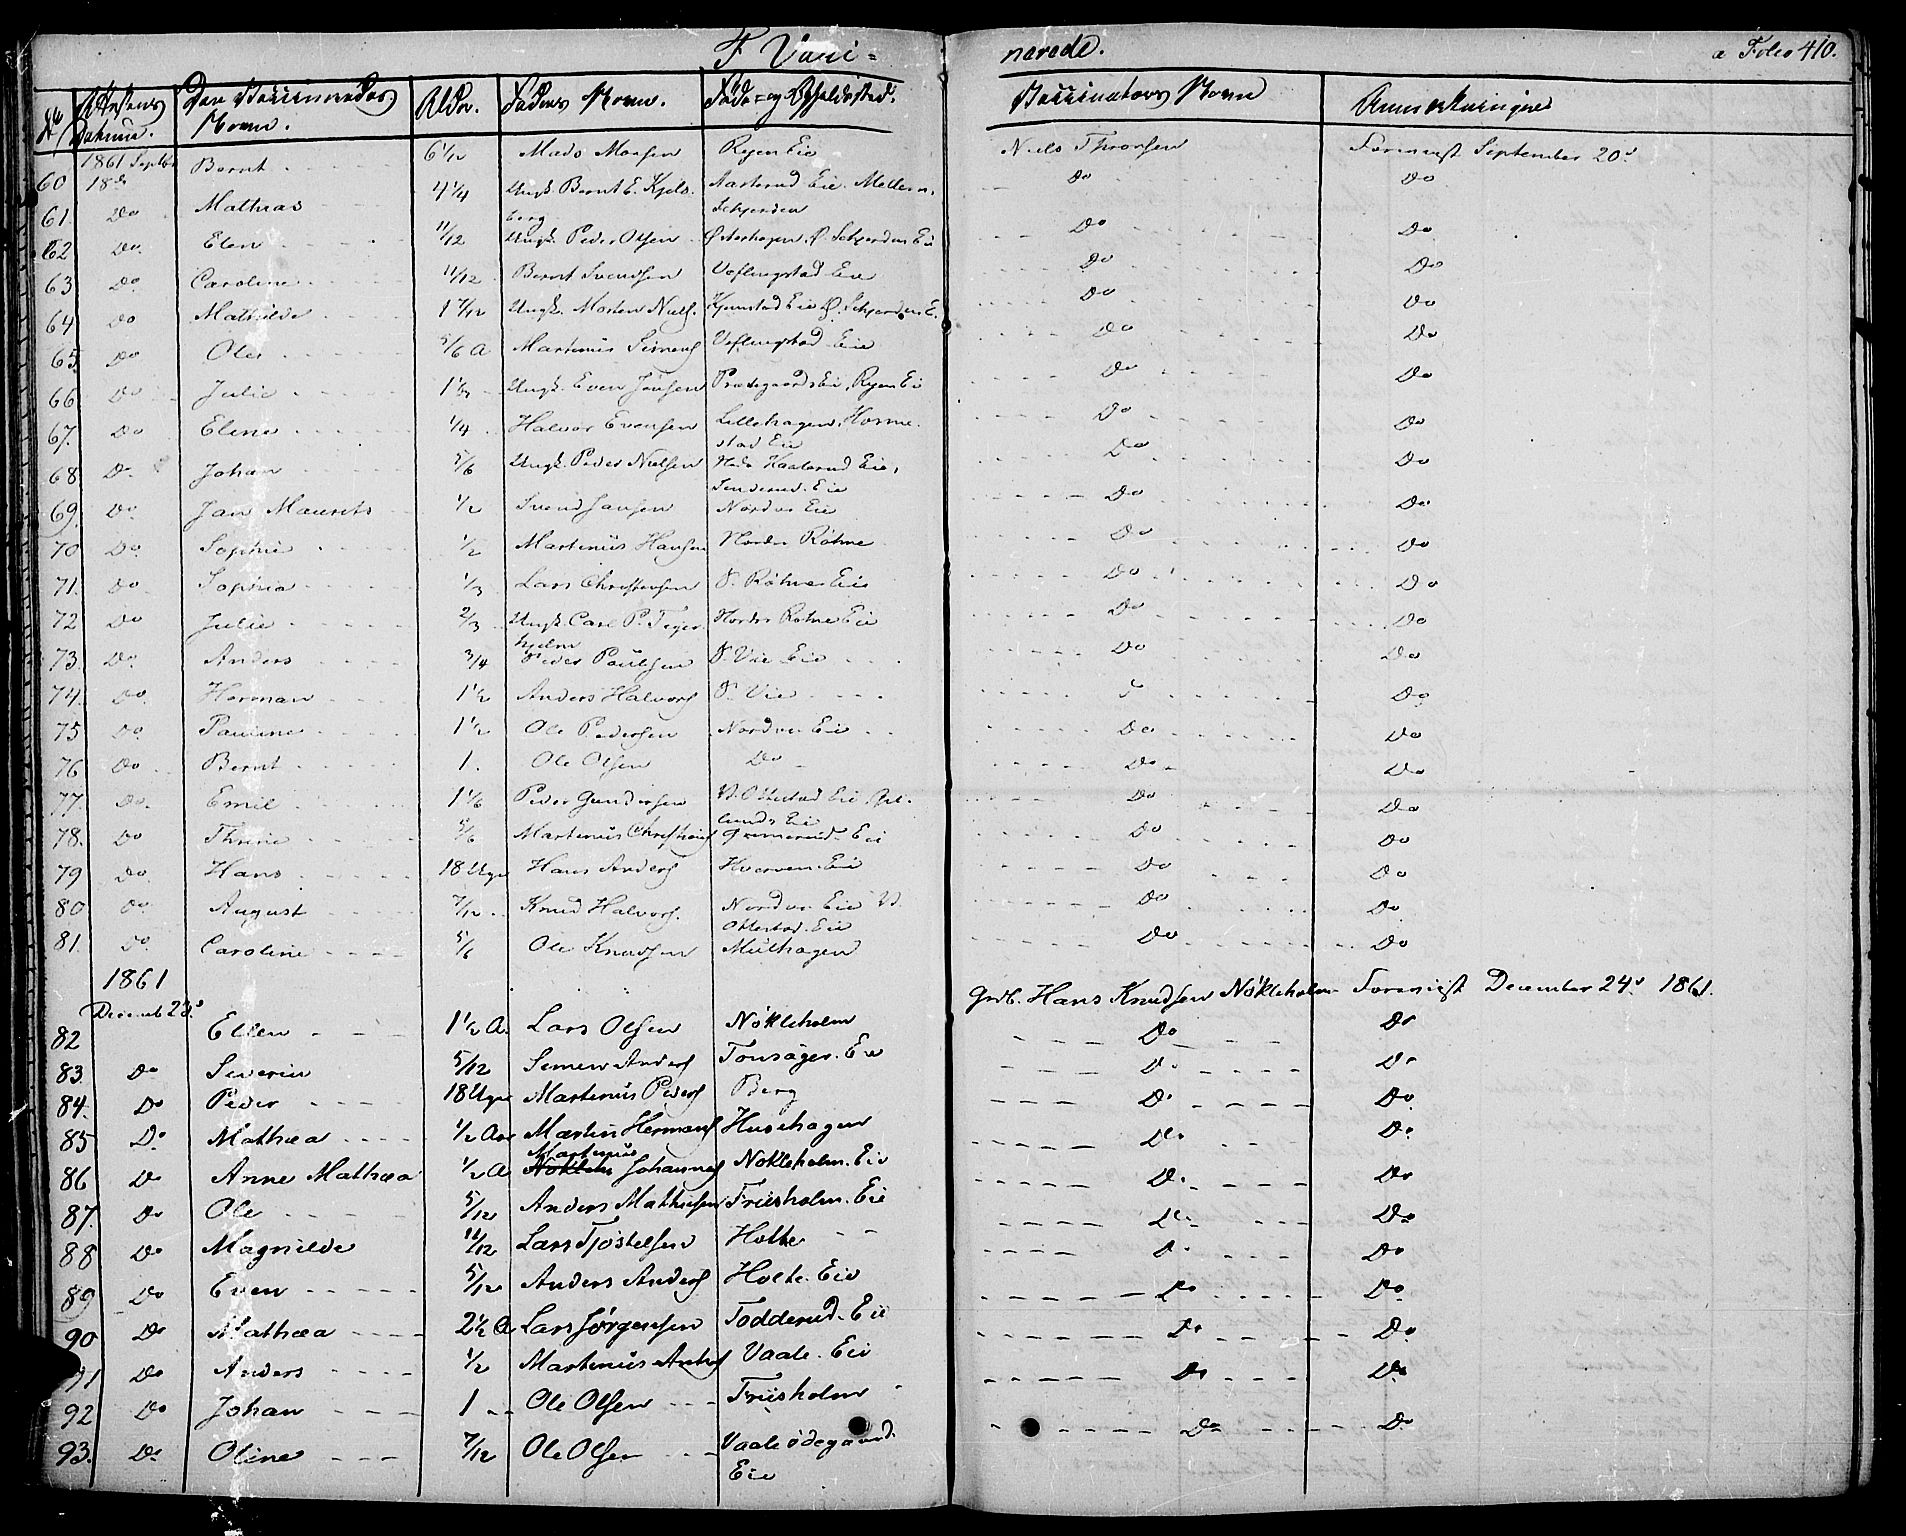 F. Vacci= nerede. a Folio 410.
No Attestens Datum. Den Vaccineredes Navn. Alder. Faders Navn. Føde- og Opholdssted. Vaccinators Navn Anmærkninger
1861 Septbr
60 18de Bernt 6 1/12 Mads Monsen Ryen Eie Niels Thronsen Foreviist September 20d
61. Do Mathias 4 1/4 Ungk. Bernt E. Kjels- Aasterud Eie. Mellem, Do Do
berg Schjerden
62 Do Elen 11/12 Ungk. Peder Olsen Østerhagen, Ø. Schjerden Eie Do Do
63 Do Caroline 11/12 Bernt Svendsen Veflingstad Eie Do Do
64 Do Mathilde 1 7/12 Ungk. Morten Niels. Kjemstad Eie Ø. Schjerden E. Do Do
65 Do Ole 5/6 A Martinus Simens Veflingstad Eie Do Do
66 Do Julie 1 1/2 Ungk. Even Jensen Prestegaards Eie, Ryen Eie Do Do
67. Do Eline 1/4 Halvor Evensen Lillehagen, Horne- Do Do
stad Eie
68 Do Johan 5/6 Ungk. Peder Nielsen Nedr Kaaterud Eie, Do Do
Senderud. Eie
69. Do Jan Maurits 1/2 Svend Jansen Nordvi Eie Do Do
70 Do Sophie 1/2 Martinus Hansen Nordr Röhne Do Do
71. Do Sophia 1/3 Lars Christensen S. Röhne Eie Do Do
72 Do Julie 2/3 Ungk. Carl P. Teger- Nordr Röhne Eie Do Do
hjelm
73. Do Anders 3/4 Peder Paulsen S. Vie Eie Do Do
74. Do Herman 1 1/2 Anders Halvors S. Vie Do
75 Do Pauline 1 1/2 Ole Pedersen Nordvi Eie Do Do
76 Do Bernt 1. Ole Olsen Do Do Do
77. Do Emil 1 1/6 Peder Gundersen V. Ottestad Eie, Do Do
lunds Eie
78. Do Thrine 5/6 Martinus Christians Grimerud Eie Do Do
79 Do Hans 18 Uger Hans Anders Hverven. Eie Do Do
80 Do August 7/12 Knud Halvors. Nordvi Eie V. Do Do
Ottestad. Eie
81. Do Caroline 5/6 Ole Knudsen Mülhagen Do Do
1861
Decemb 23d Grdb. Hans Knudsen Nökleholm Foreviist December 24d 1861.
82 Ellen 1 1/2 A. Lars Olsen Nökleholm Do Do
83. Do Severin 5/12 Simen Anders Tonsager. Eie Do Do
84. Do Peder 18 Uger Martinus Peders Berg Do Do
85 Do Mathea 1/2 Aar Martin Hermans Husehagen Do Do
Martinus
86 Do Anne Mathea 1/2 A Nöklehl Johannes Nökleholm. Eie Do Do
87. Do Ole 5/12 Anders Mathiesen Friisholm. Eie Do Do
88 Do Magnilde 11/12 Lars Tjöstelsen Holte Do Do
89 Do Even 5/12 Anders Anders Holte. Eie Do Do
90 Do Mathea 2 1/2 A Lars Jörgensen Todderud. Eie Do Do
91 Do Anders 1/2 Martinus Anders Vaale. Eie Do Do
92 Do Johan 1 Ole Olsen Friisholm
93. Do Oline 7/12 Ole Olsen Vaaleödegaard. Do Do
Eie